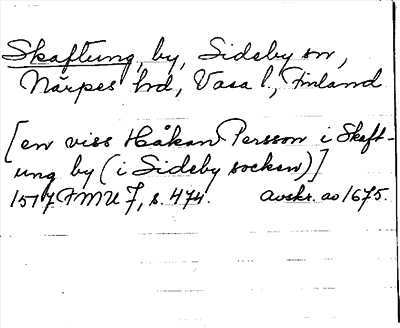 Skaftung, by, Sideby sn,
Närpes hd, Vasa l., Finland
[en viss Håkan Persson i Skaft-
ung by (i Sideby socken)]
1517 FMU 7, s. 474. Avskr. ao 1675.